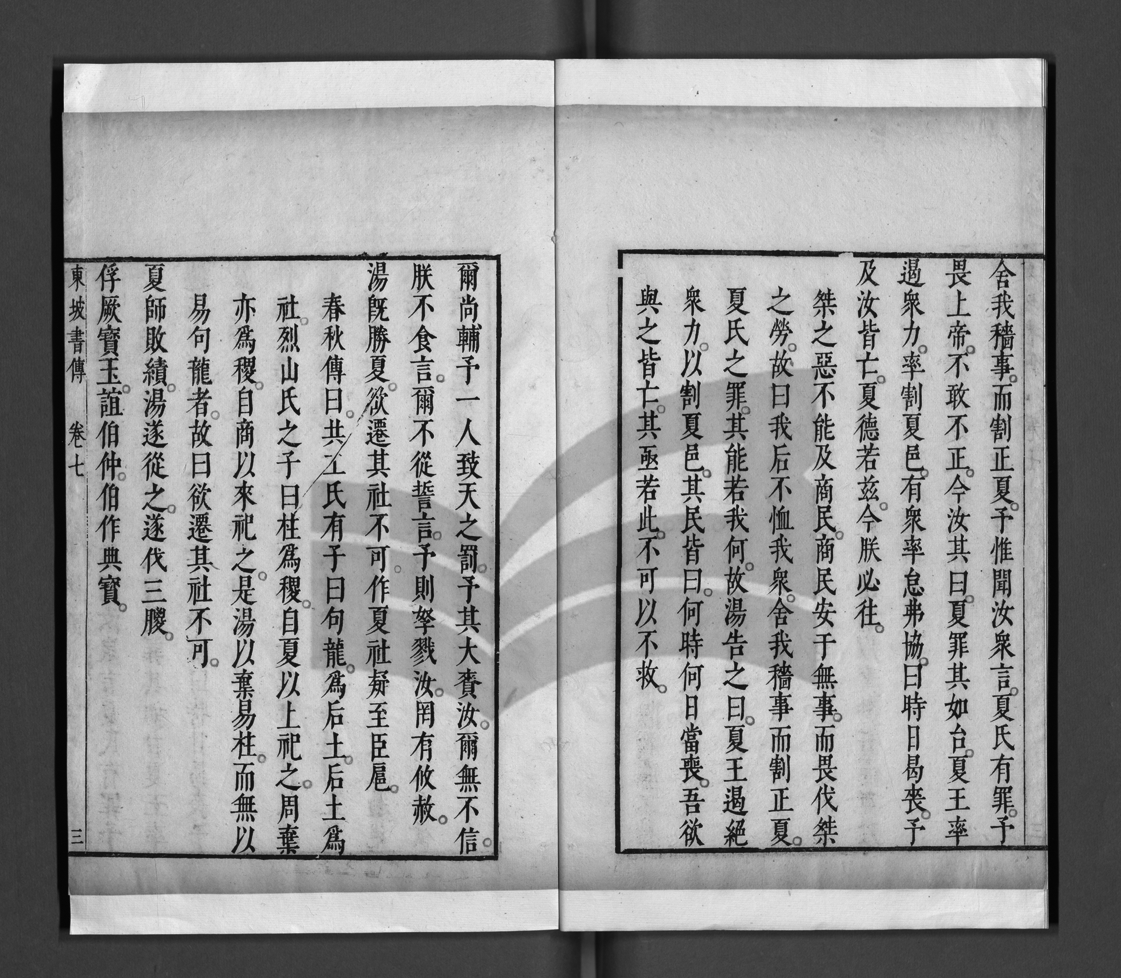 舍我穡事。而割正夏。予惟聞汝衆言。夏氏有罪。予
畏上帝。不敢不正。今汝其曰。夏罪其如台。夏王率
遏衆力。率割夏邑。有衆率怠弗協。曰時日曷喪。予
及汝皆亡。夏德若茲。今朕必往。
桀之惡不能及商民。商民安于無事。而畏伐桀
之勞。故曰我后不恤我衆。舍我穡事而割正夏。
夏氏之罪。其能若我何。故湯告之曰。夏王遏絕
衆力。以割夏邑。其民皆曰。何時何日當喪。吾欲
與之皆亡。其亟若此。不可以不救。
爾尚輔予一人致天之罰。予其大賚汝。爾無不信。
朕不食言。爾不從誓言。予則孥戮汝。罔有攸赦。
湯旣勝夏。欲遷其社不可。作夏社疑至臣扈。
春秋傳曰。共工氏有子曰句龍。爲后土。后土爲
社。烈山氏之子曰柱爲稷。自夏以上祀之。周棄
亦爲稷。自商以來祀之。是湯以棄易柱。而無以
易句龍者。故曰欲遷其社不可。
夏師敗績。湯遂從之。遂伐三朡。
俘厥寶玉。誼伯仲伯作典寶。
東坡書傳 卷七 三